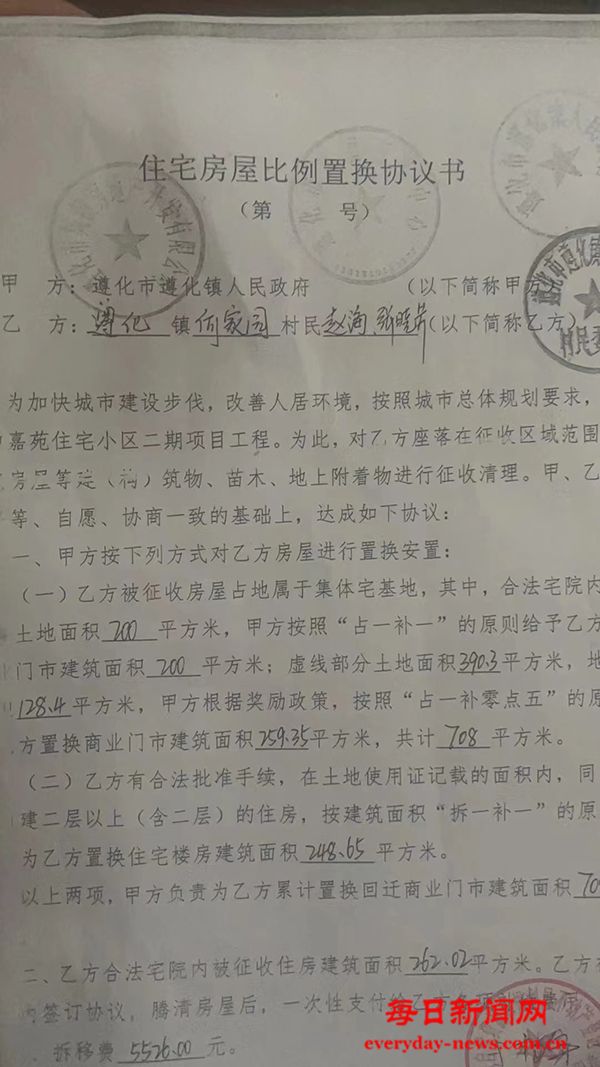 住宅房屋比例置换协议书
（第 号）
甲 方：遵化市遵化镇人民政府 （以下简称甲方）
乙 方：遵化 镇 何家园 村民 赵海、（以下简称乙方）
为加快城市建设步伐，改善人居环境，按照城市总体规划要求，
嘉苑住宅小区二期项目工程。为此，对乙方座落在征收区域范围
房屋等建（构）筑物、苗木、地上附着物进行征收清理。甲、乙
等、自愿、协商一致的基础上，达成如下协议：
一、甲方按下列方式对乙方房屋进行置换安置：
（一）乙方被征收房屋占地属于集体宅基地，其中，合法宅院内
土地面积 200 平方米，甲方按照“占一补一”的原则给予乙方
门市建筑面积 200 平方米；虚线部分土地面积390.3平方米，地
128.4平方米，甲方根据奖励政策，按照“占一补零点五”的原
方置换商业门市建筑面积259.35平方米，共计 708 平方米。
（二）乙方有合法批准手续，在土地使用证记载的面积内，同
建二层以上（含二层）的住房，按建筑面积“拆一补一”的原
为乙方置换住宅楼房建筑面积 248.65 平方米。
以上两项，甲方负责为乙方累计置换回迁商业门市建筑面积
二、乙方合法宅院内被征收住房建筑面积 262.02平方米。乙方
签订协议，腾清房屋后，一次性支付给乙方
拆移费 5526.00 元。
每日新闻网
everyday-news.com.cn